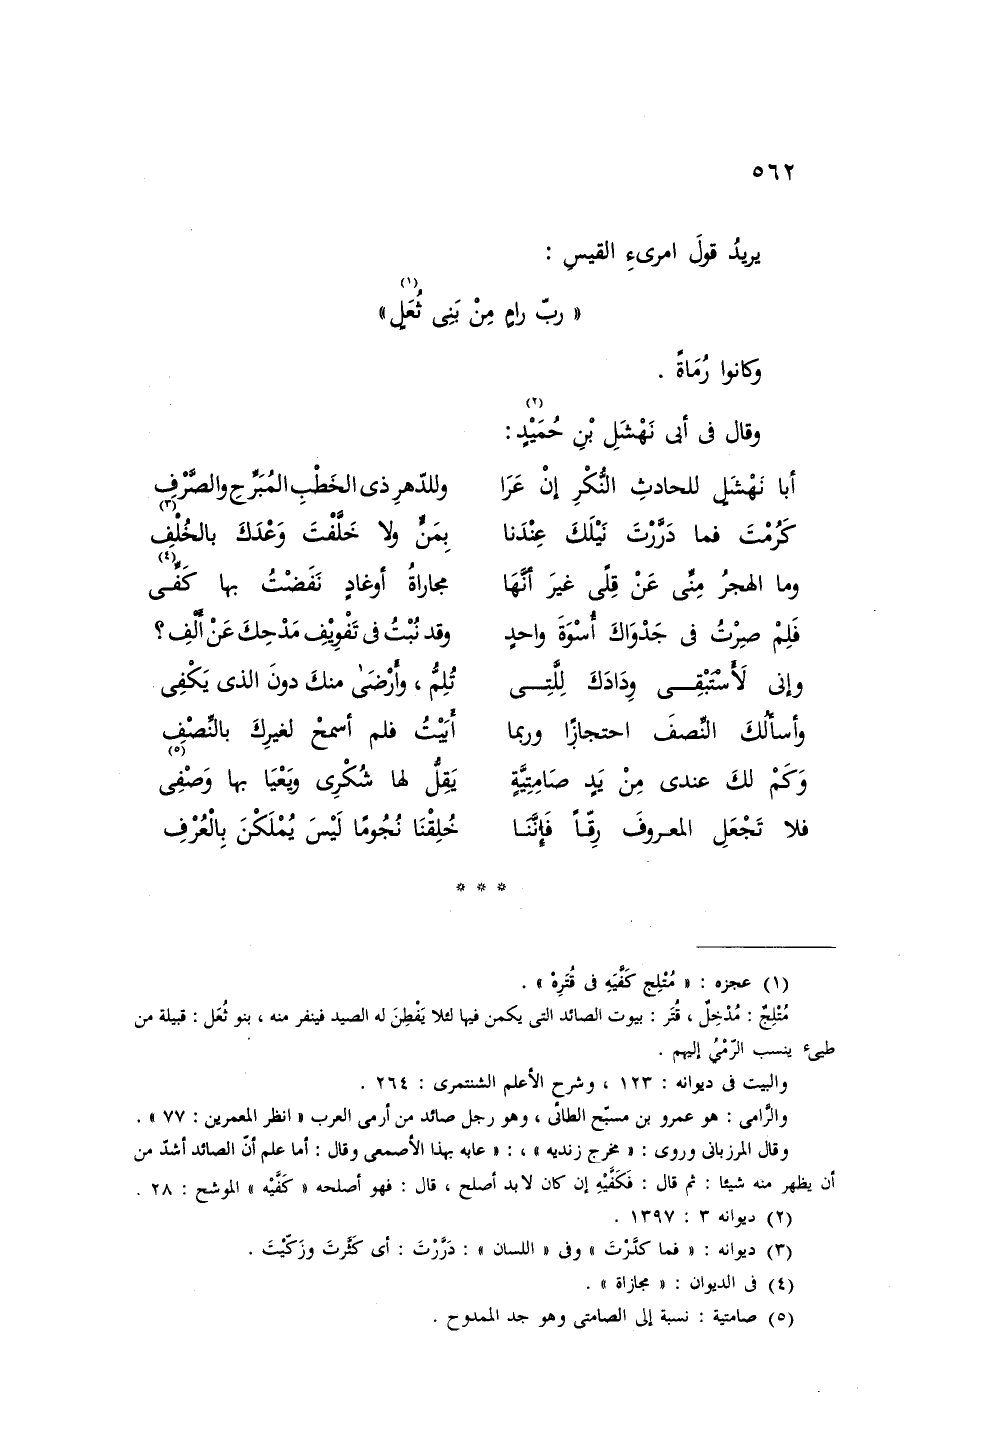 ٥٦٢
يريدُ قولَ امرىءِ القيسِ :
« ربّ رامٍ مِنْ بَنِى ثُعَلٍ» (١)
وكانوا رُمَاةً .
وقال فى أبى نَهْشَلِ بْنِ حُمَيْدٍ (٢) :
أبا نَهْشَلٍ للحادثِ النُّكْرِ إنْ عَرَا وللدّهرِ ذى الخَطْبِ المُبَرِّحِ والصَّرْفِ
كَرُمْتَ فما دَرَّرْتَ نَيْلَكَ عِنْدَنا بِمَنٍّ ولا خَلَّفْتَ وَعْدَكَ بالخُلْفِ (٣)
وما الهجرُ مِنِّى عَنْ قِلًى غيرَ أنَّهَا مجاراةُ أوغادٍ نَفَضْتُ بها كَفِّى (٤)
فَلِمْ صِرْتُ فى جَدْوَاكَ أُسْوَةَ واحدٍ وقد نُبْتُ فى تَفْوِيْفِ مَدْحِكَ عَنْ أَلْفِ ؟
وإنى لَأَسْتَبْقِى وِدَادَكَ لِلَّتِى تُلِمُّ ، وأَرْضَىٰ منكَ دونَ الذى يَكْفِى
وأسألُكَ النِّصفَ احتجازًا وربما أَبَيْتُ فلم أسمحْ لغيرِكَ بالنِّصْفِ
وَكَمْ لكَ عندى مِنْ يَدٍ صَامِتِيَّةٍ يَقِلُّ لها شُكْرِى ويَعْيَا بها وَصْفِى (٥)
فلا تَجْعَلِ المعروفَ رِقّاً فَإِنَّنَا خُلِقْنَا نُجُومًا لَيْسَ يُمْلَكْنَ بِالْعُرْفِ
* * *
(١) عجزه : « مُتْلِجٍ كَفَّيْهِ فى قُتَرِهْ » .
مُتْلِجٌ : مُدْخِلٌ ، قُتَر : بيوت الصائد التى يكمن فيها لئلا يَفْطِنَ له الصيد فينفر منه ، بنو ثُعَل : قبيلة من
طيىء ينسب الرّمْىُ إليهم .
والبيت فى ديوانه : ١٢٣ ، وشرح الأعلم الشنتمرى : ٢٦٤ .
والرَّامى : هو عمرو بن مسبّح الطائى ، وهو رجل صائد من أرمى العرب « انظر المعمرين : ٧٧ » .
وقال المرزبانى وروى : « مخرج زنديه » ، : « عابه بهذا الأصمعى وقال : أما علم أنّ الصائد أشدّ من
أن يظهر منه شيئا : ثم قال : فَكَفَّيْهِ إن كان لا بد أصلح ، قال : فهو أصلحه « كَفَّيْه » الموشح : ٢٨ .
(٢) ديوانه ٣ : ١٣٩٧ .
(٣) ديوانه : « فما كدّرْتَ » وفى « اللسان » : دَرَّرْتَ : أى كَثَّرتَ وزَكّيْتَ .
(٤) فى الديوان : « مجازاة » .
(٥) صامتية : نسبة إلى الصامتى وهو جد الممدوح .